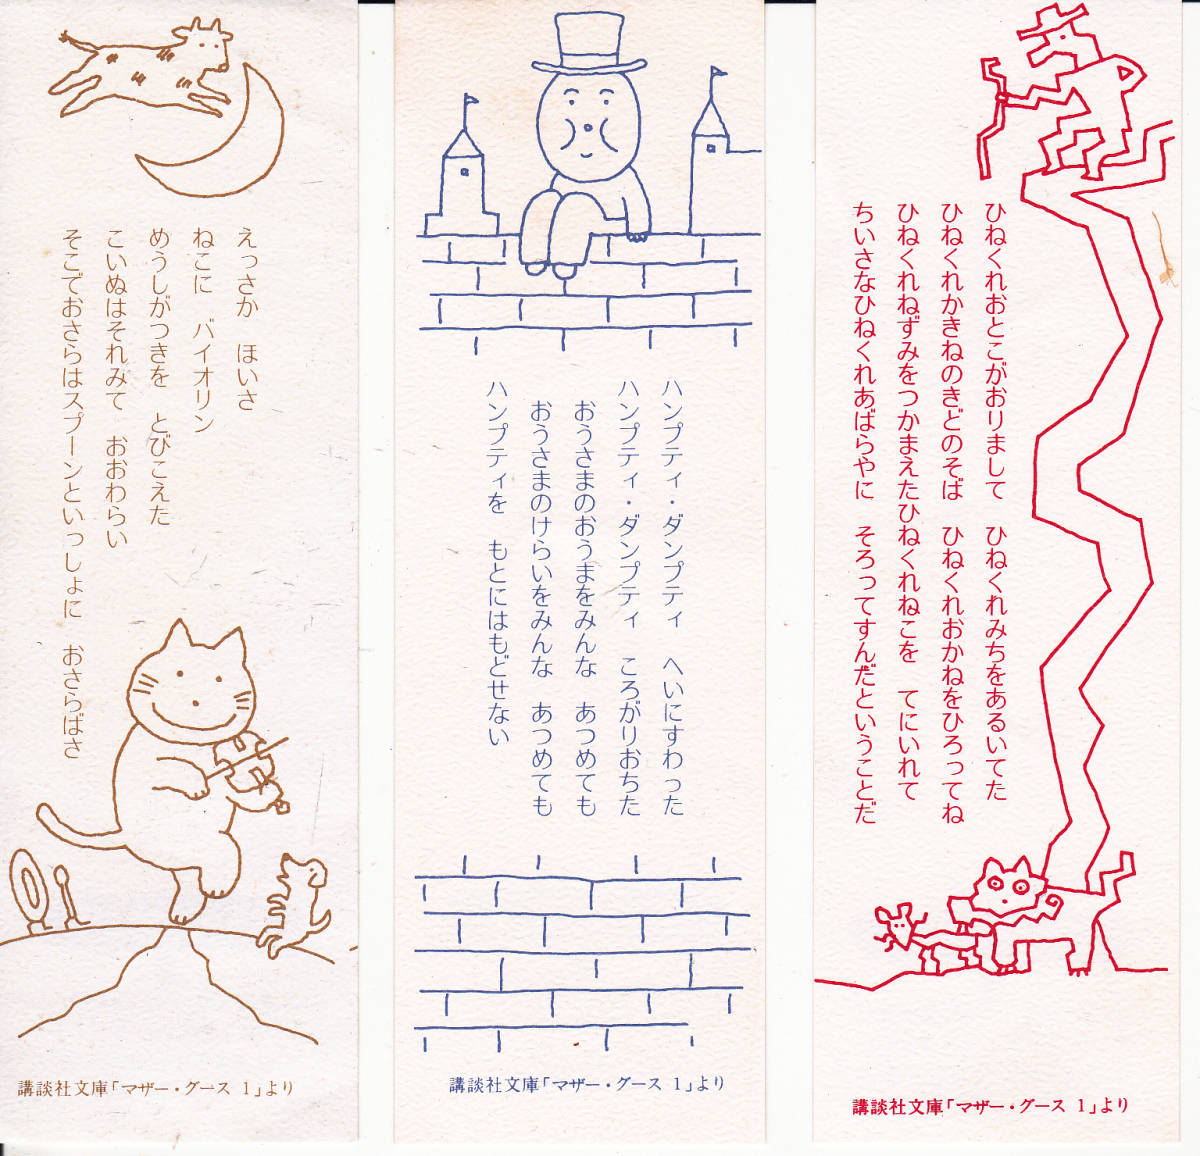 えっさか　ほいさ
ねこに　バイオリン
めうしがつきを　とびこえた
こいぬはそれみて　おおわらい
そこでおさらはスプーンといっしょに　おさらばさ
講談社文庫「マザー・グース 1」より
ハンプティ・ダンプティ　へいにすわった
ハンプティ・ダンプティ　ころがりおちた
おうさまのおうまをみんな　あつめても
おうさまのけらいをみんな　あつめても
ハンプティを　もとにはもどせない
講談社文庫「マザー・グース 1」より
ひねくれおとこがおりまして　ひねくれみちをあるいてた
ひねくれかきねのきどのそば　ひねくれおかねをひろってね
ひねくれねずみをつかまえたひねくれねこを　てにいれて
ちいさなひねくれあばらやに　そろってすんだということだ
講談社文庫「マザー・グース 1」より